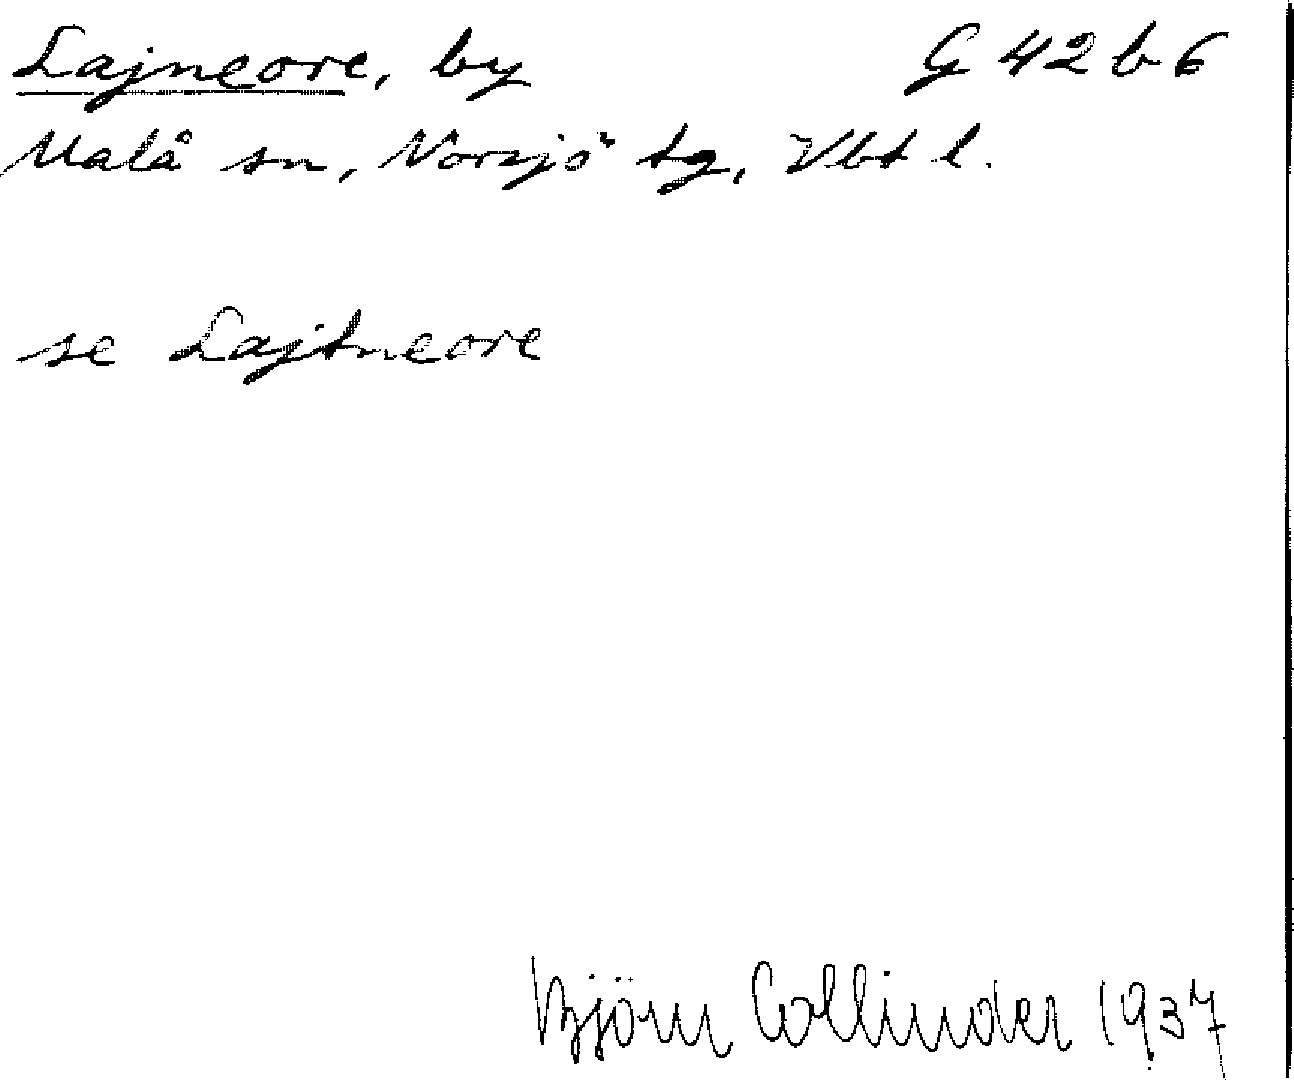 Lajneore, by G 42 b 6
Malå sn, Norsjö tg, Vbt l.
se Lajtneore
Björn Collinder 1937